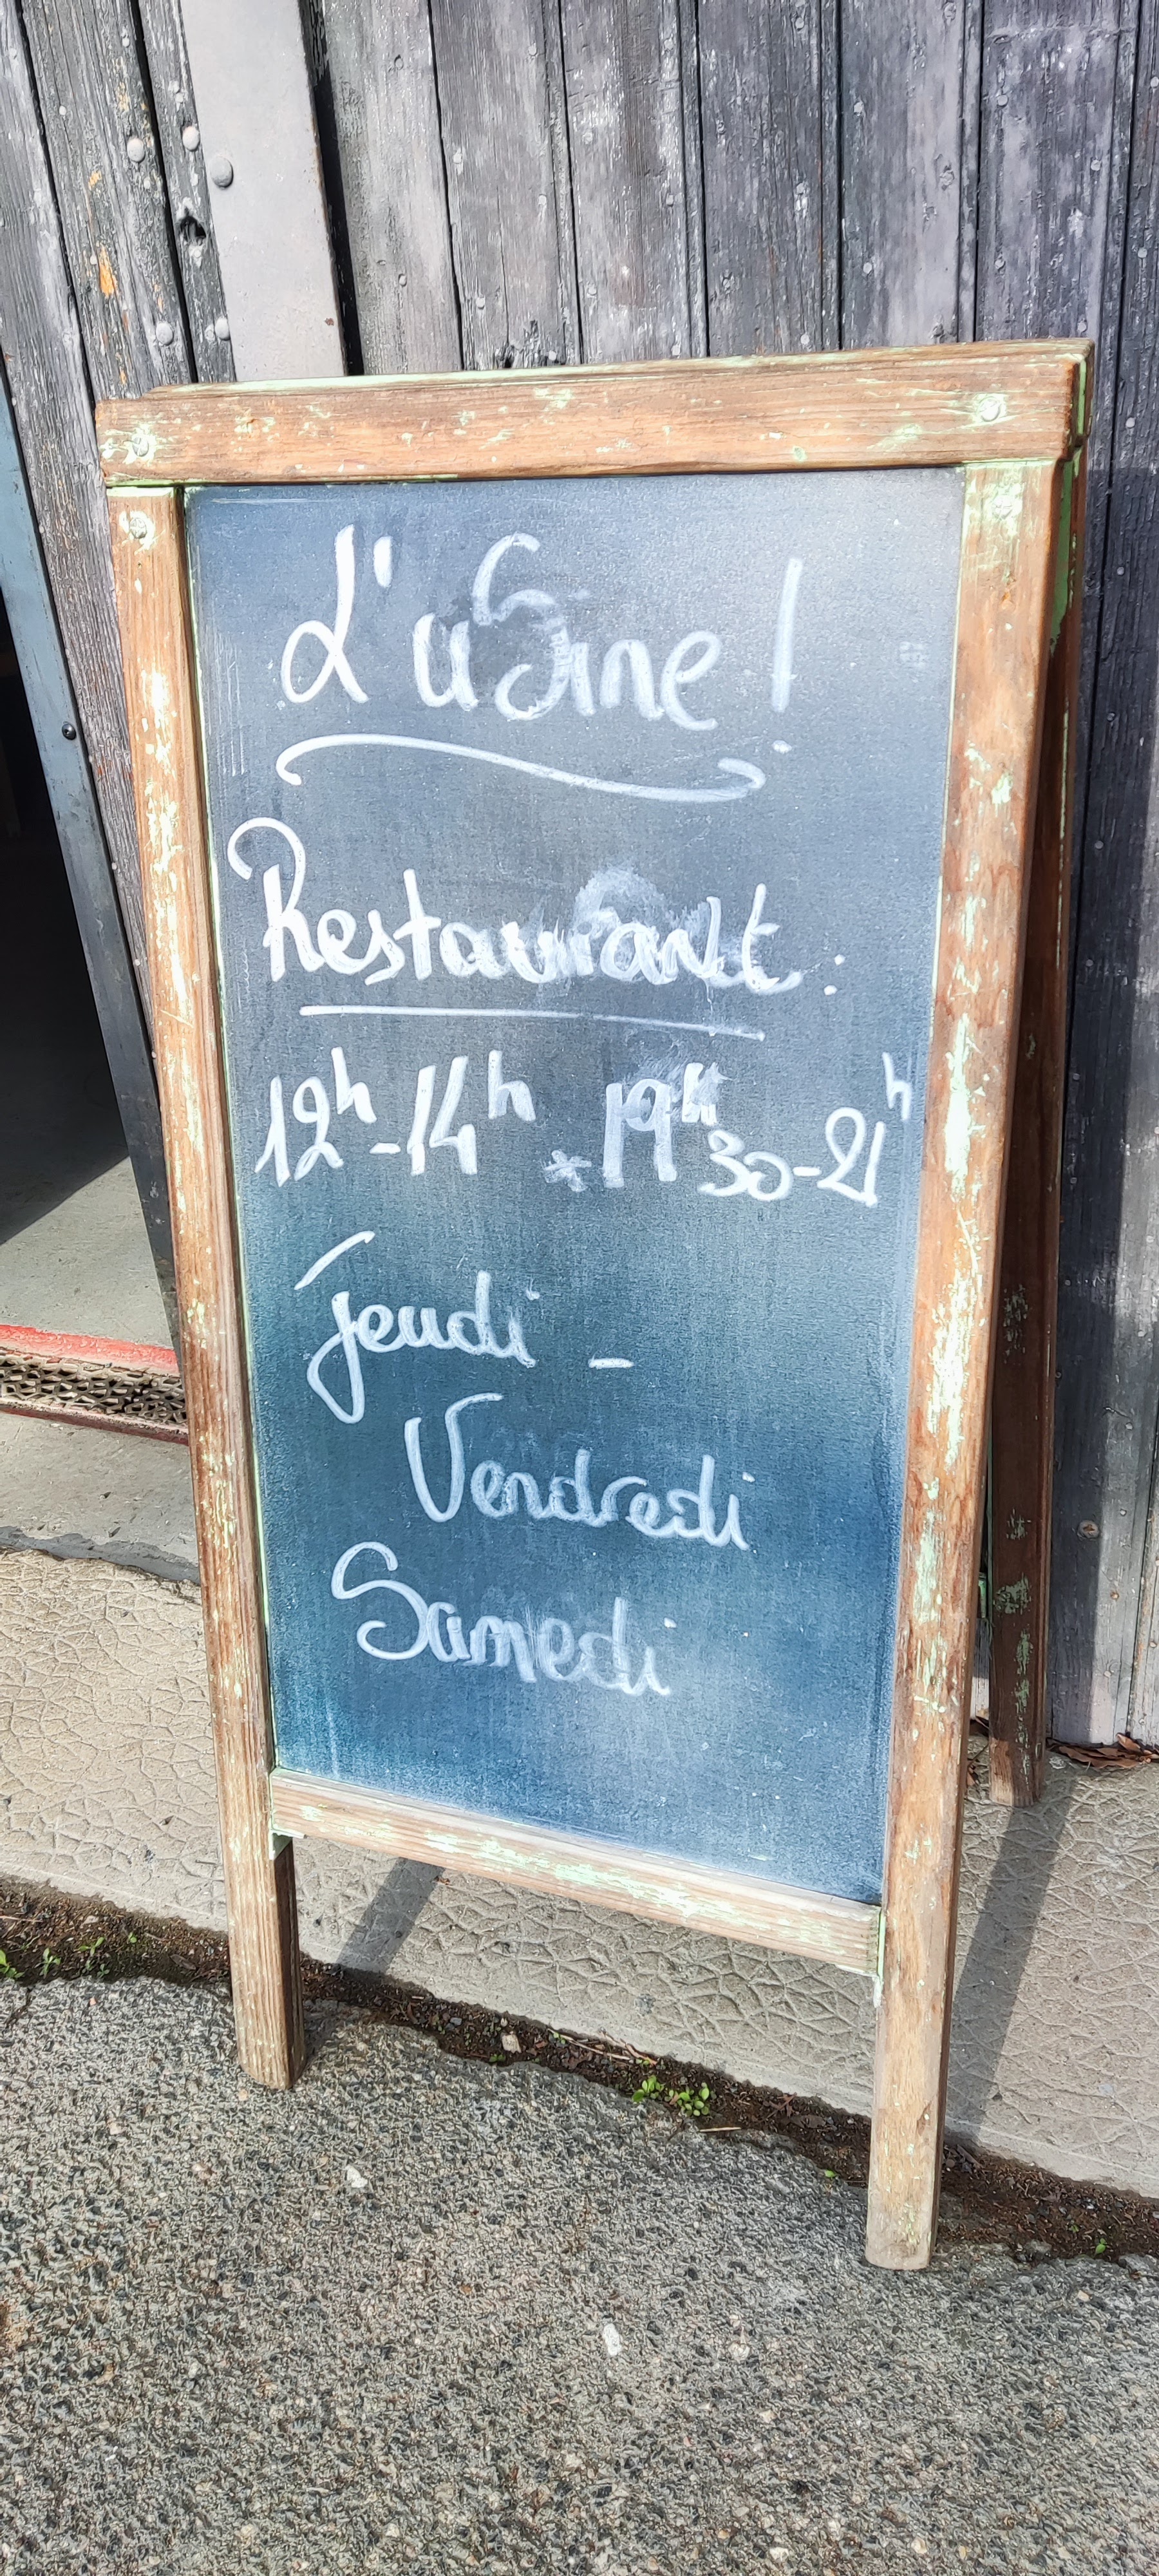 L'uSine !
Restaurant :
12h-14h * 19h30-21h
Jeudi -
Vendredi
Samedi